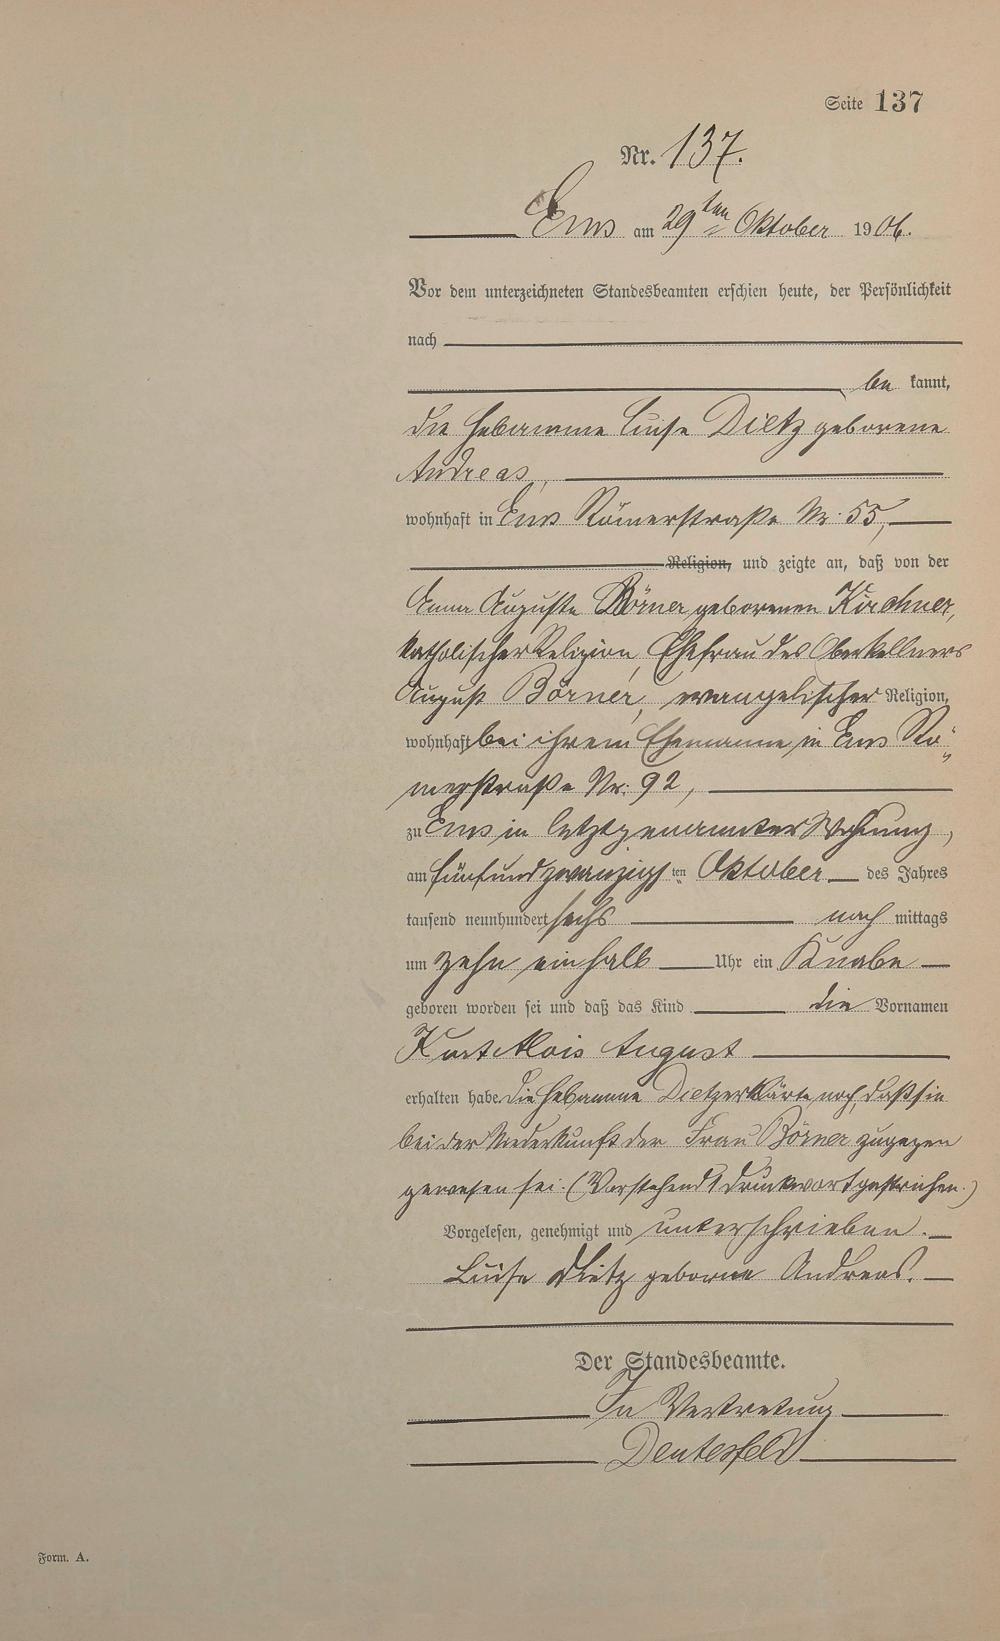 Seite 137
Nr. 137.
Ems am 29ten Oktober 1906.
Vor dem unterzeichneten Standesbeamten erschien heute, der Persönlichkeit
nach
be kannt,
die Hebamme Luise Dietz geborene
Andreas,
wohnhaft in Ems Römerstraße Nr. 55,
Religion, und zeigte an, daß von der
Anna Auguste Börner geborenen Kirchner,
katholischer Religion, Ehefrau des Oberkellners
August Börner, evangelischer Religion,
wohnhaft bei ihrem Ehemanne in Ems Rö„
merstraße Nr. 92,
zu Ems in letztgenannter Wohnung,
am fünfundzwanzigsten Oktober des Jahres
tausend neunhundert sechs nach mittags
um zehn einhalb Uhr ein Knabe
geboren worden sei und daß das Kind die Vornamen
Kurt Alois August
erhalten habe. Die Hebamme Dietz erklärte noch, daß sie
bei der Niederkunft der Frau Börner zugegen
gewesen sei. (Vorstehend 1 Druckwort gestrichen.)
Vorgelesen, genehmigt und unterschrieben.
Luise Dietz geborne Andreas.
Der Standesbeamte.
In Vertretung
Form. A.